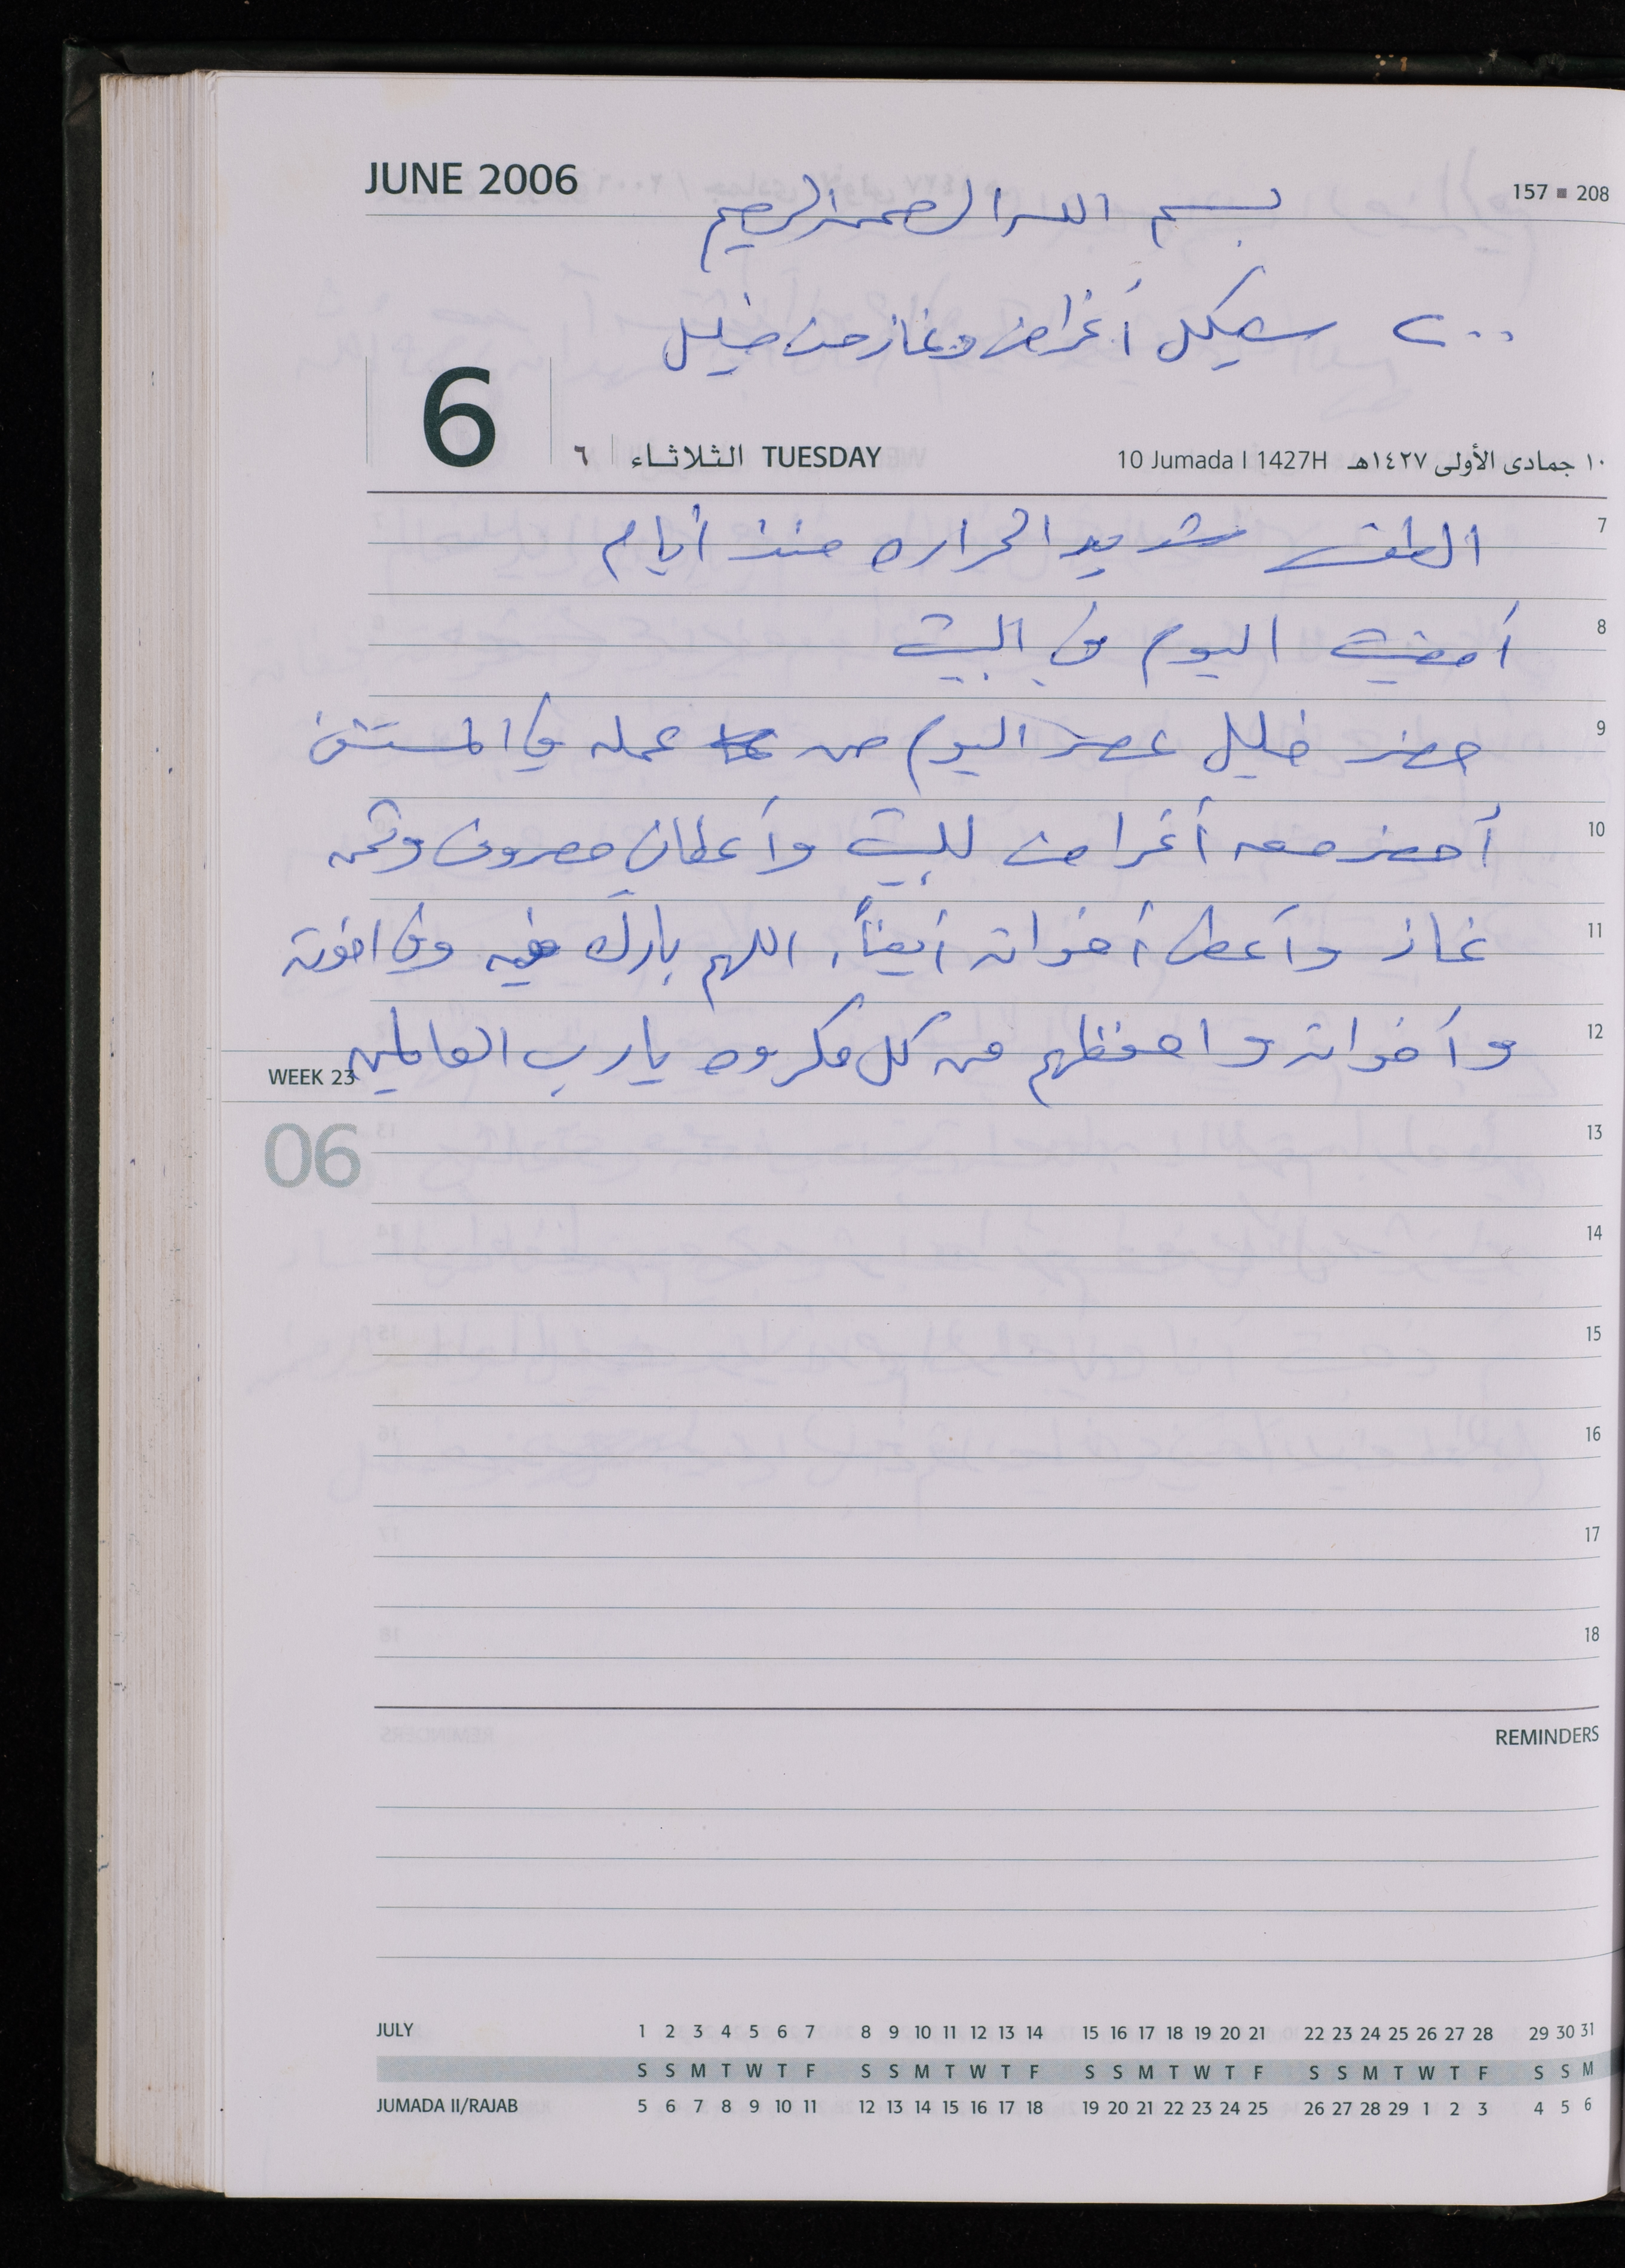 JUNE 2006
157 ▪ 208
بسم الله الرحمن الرحيم
٢٠٠ شيكل أغراض وغاز من خليل
6
٦ الثلاثاء TUESDAY
10 Jumada I 1427H ١٠ جمادى الأولى ١٤٢٧هـ
7 الطقس شديد الحراره منذ أيام
8 أمضيت اليوم في البيت
9 حضر خليل عصر اليوم من عمله في المستشفى
10 أحضر معه أغراض للبيت وأعطاني مصروف وثمن
11 غاز وأعطى أخواته أيضاً، اللهم بارك فيه وفي اخوته
12 وأخواته واحفظهم من كل مكروه يا رب العالمين
WEEK 23
06
13
14
15
16
17
18
REMINDERS
JULY 1 2 3 4 5 6 7 8 9 10 11 12 13 14 15 16 17 18 19 20 21 22 23 24 25 26 27 28 29 30 31
S S M T W T F S S M T W T F S S M T W T F S S M T W T F S S M
JUMADA II/RAJAB 5 6 7 8 9 10 11 12 13 14 15 16 17 18 19 20 21 22 23 24 25 26 27 28 29 1 2 3 4 5 6